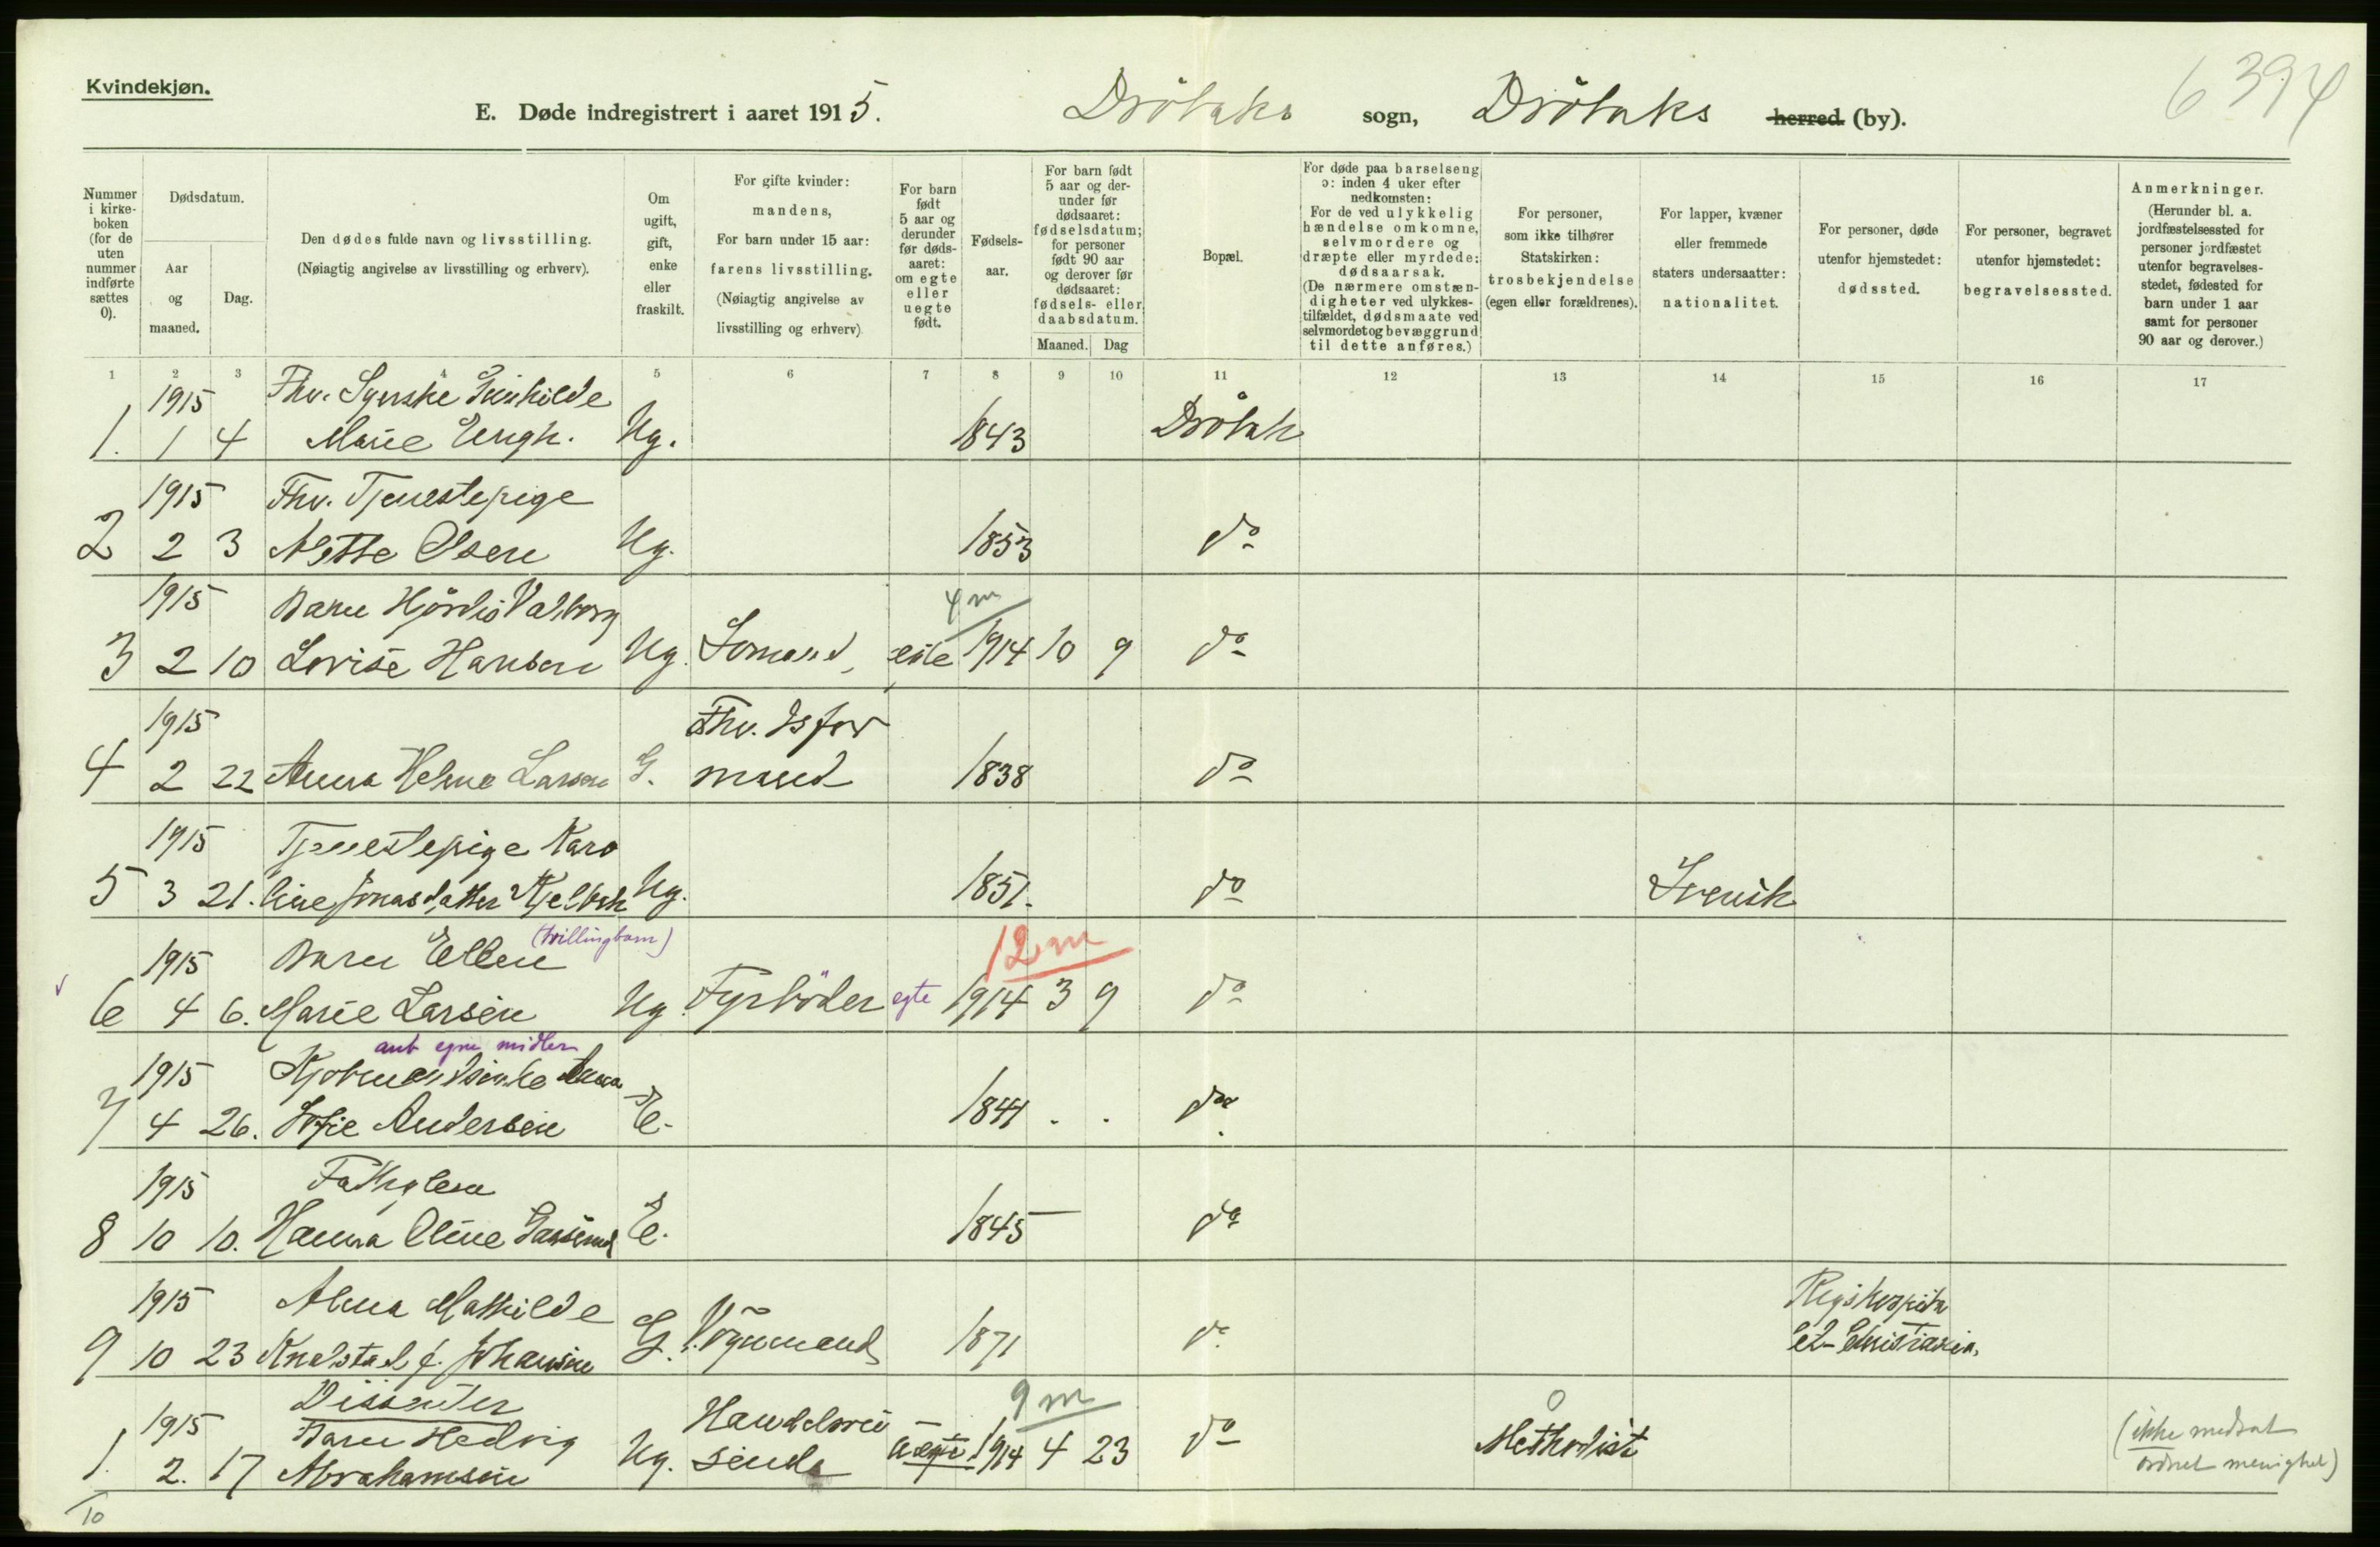 Kvindekjøn.
E. Døde indregistrert i aaret 1915.
Drøbaks sogn, Drøbaks herred (by).
6394
Nummer i kirke-boken (for de uten nummer indførte sættes 0).
Dødsdatum.
Aar og maaned.
Dag.
Den dødes fulde navn og livsstilling.
(Nøiagtig angivelse av livsstilling og erhverv).
Om ugift, gift, enke eller fraskilt.
For gifte kvinder: mandens,
For barn under 15 aar: farens livsstilling.
(Nøiagtig angivelse av livsstilling og erhverv)
For barn født 5 aar og derunder før døds-aaret: om egte eller uegte født.
Fødsels-aar.
For barn født 5 aar og der-under før dødsaaret: fødselsdatum; for personer født 90 aar og derover før dødsaaret: fødsels- eller daabsdatum.
Maaned. Dag
Bopæl.
For døde paa barselseng ɔ: inden 4 uker efter nedkomsten:
For de ved ulykkelig hændelse omkomne, selvmordere og dræpte eller myrdede: dødsaarsak.
(De nærmere omstæn-digheter ved ulykkes-tilfældet, dødsmaate ved selvmordet og bevæggrund til dette anføres.)
For personer, som ikke tilhører Statskirken: trosbekjendelse (egen eller forældrenes).
For lapper, kvæner eller fremmede staters undersaatter: nationalitet.
For personer, døde utenfor hjemstedet: dødssted.
For personer, begravet utenfor hjemstedet: begravelsessted.
Anmerkninger.
(Herunder bl. a. jordfæstelsessted for personer jordfæstet utenfor begravelses-stedet, fødested for barn under 1 aar samt for personer 90 aar og derover.)
1 2 3 4 5 6 7 8 9 10 11 12 13 14 15 16 17
1915 Fhv. Syerske Gunhilde
1. 1 4 Marie Engh. Ug. 1843 Drøbak
1915 Fhv. Tjenestepige
2 2 3 Mette Olsen Ug. 1853 do
1915 Barn Hjördis Valborg 4 m
3 2 10 Lovise Hansen Ug. Sømand, egte 1914 10 9 do
1915 Fhv. Isfor
4 2 22 Anna Helene Larsen G. mand 1838 do
1915 Tjenestepige Karo
5 3 21. line Jonasdatter Ug. 1851. do Svensk
1915 Barn Ellen (tvillingbarn) 12 m
6 4 6. Marie Larsen Ug. Fyrbøder egte 1914 3 9 do
ant egne midler
1915 Kjøbmandsenke Anna
7 4 26. Sofie Andersen E. 1841 . . do
1915 Fattiglem
8 10 10. Hanna Oline E. 1845 do
1915 Alma Mathilde Rigshospita
9 10 23 f. Johansen G. Vognmand 1871 do let Christiania.
Dissenter 9 m
1915 Barn Hedvig Handelsrei 0
1. 2. 17 Abrahamsen Ug. sende uegte 1914 4 23 do Methodist (ikke medsat ordnet menighet)
10